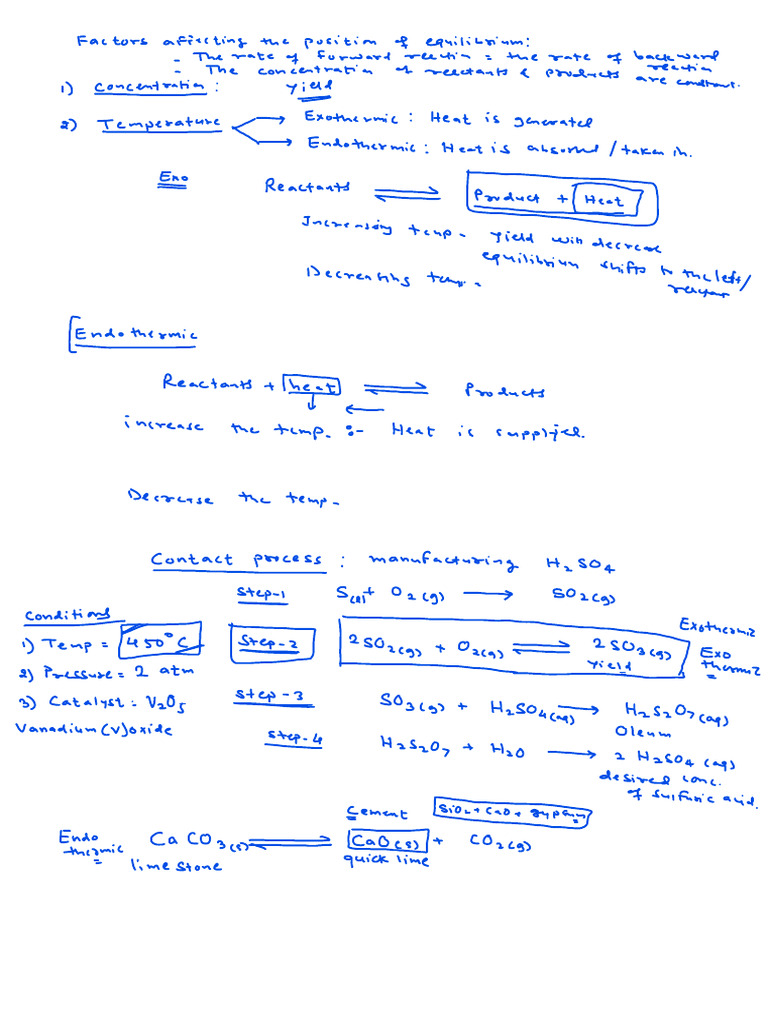 Factors affecting the position of equilibrium:
- The rate of forward reaction = the rate of backward reaction
- The concentration of reactants & products are constant.
1) Concentration : Yield
2) Temperature → Exothermic : Heat is generated
→ Endothermic : Heat is absorbed / taken in.
Exo Reactants ⇌ Product + Heat
Increasing temp - yield will decrease
equilibrium shifts to the left/
reactant
Decreasing temp -
Endothermic
Reactants + heat ⇌ Products
↓ ←
increase the temp. :- Heat is supplied.
Decrease the temp -
Contact process : manufacturing H₂SO₄
Step-1 S(s) + O₂(g) → SO₂(g)
Conditions
1) Temp = 450°C
Step-2 2SO₂(g) + O₂(g) ⇌ 2SO₃(g)
yield
Exothermic
Exo
thermic
2) Pressure = 2 atm
3) Catalyst : V₂O₅
Vanadium(V)oxide
Step-3 SO₃(g) + H₂SO₄(aq) → H₂S₂O₇(aq)
Oleum
Step-4 H₂S₂O₇ + H₂O → 2 H₂SO₄(aq)
desired conc.
of sulfuric acid.
Cement SiO₂ + CaO + gypsum
Endo
thermic
CaCO₃(s) ⇌ CaO(s) + CO₂(g)
lime stone quick lime